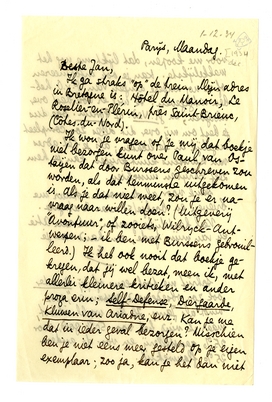 1-12-34
I 1934
Parijs, Maandag.
Beste Jan,
Ik ga straks "op" de trein. Mijn adres
in Bretagne is: Hôtel du Manoir, Le
Roselier-en-Plérin, près Saint-Brieuc,
(Côtes-du-Nord).
Ik wou je vragen of je mij dat boekje
wel bezorgen kunt over Paul van Os-
taijen dat door Burssens geschreven zou
worden, als dat tenminste uitgekomen
is. Als je dat niet weet, zou je er na-
vraag naar willen doen? (Uitgeverij
"Avontuur", of zooiets, Wilryck-Ant-
werpen; – ik ben met Burssens gebrouil-
leerd.) Ik heb ook nooit dat boekje ge-
kregen, dat jij wel bezat, meen ik, met
allerlei kleinere critieken en ander
proza erin; Self-Defense, Diergaarde,
Kluwen van Ariadne, enz. Kan je me
dat in ieder geval bezorgen? Misschien
ben je niet eens meer gesteld op je eigen
exemplaar; zoo ja, kan je het dan niet